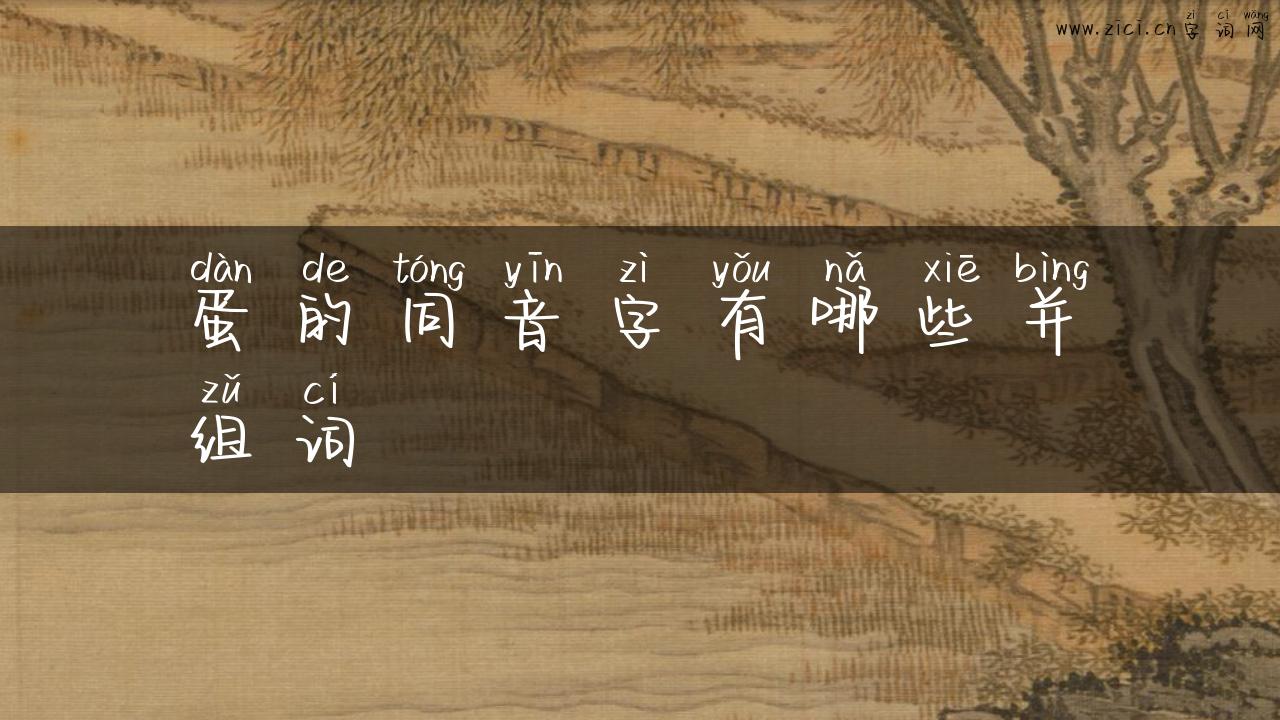 zì cí wǎng
www.zici.cn字词网
dàn de tóng yīn zì yǒu nǎ xiē bìng
蛋的同音字有哪些并
zǔ cí
组词